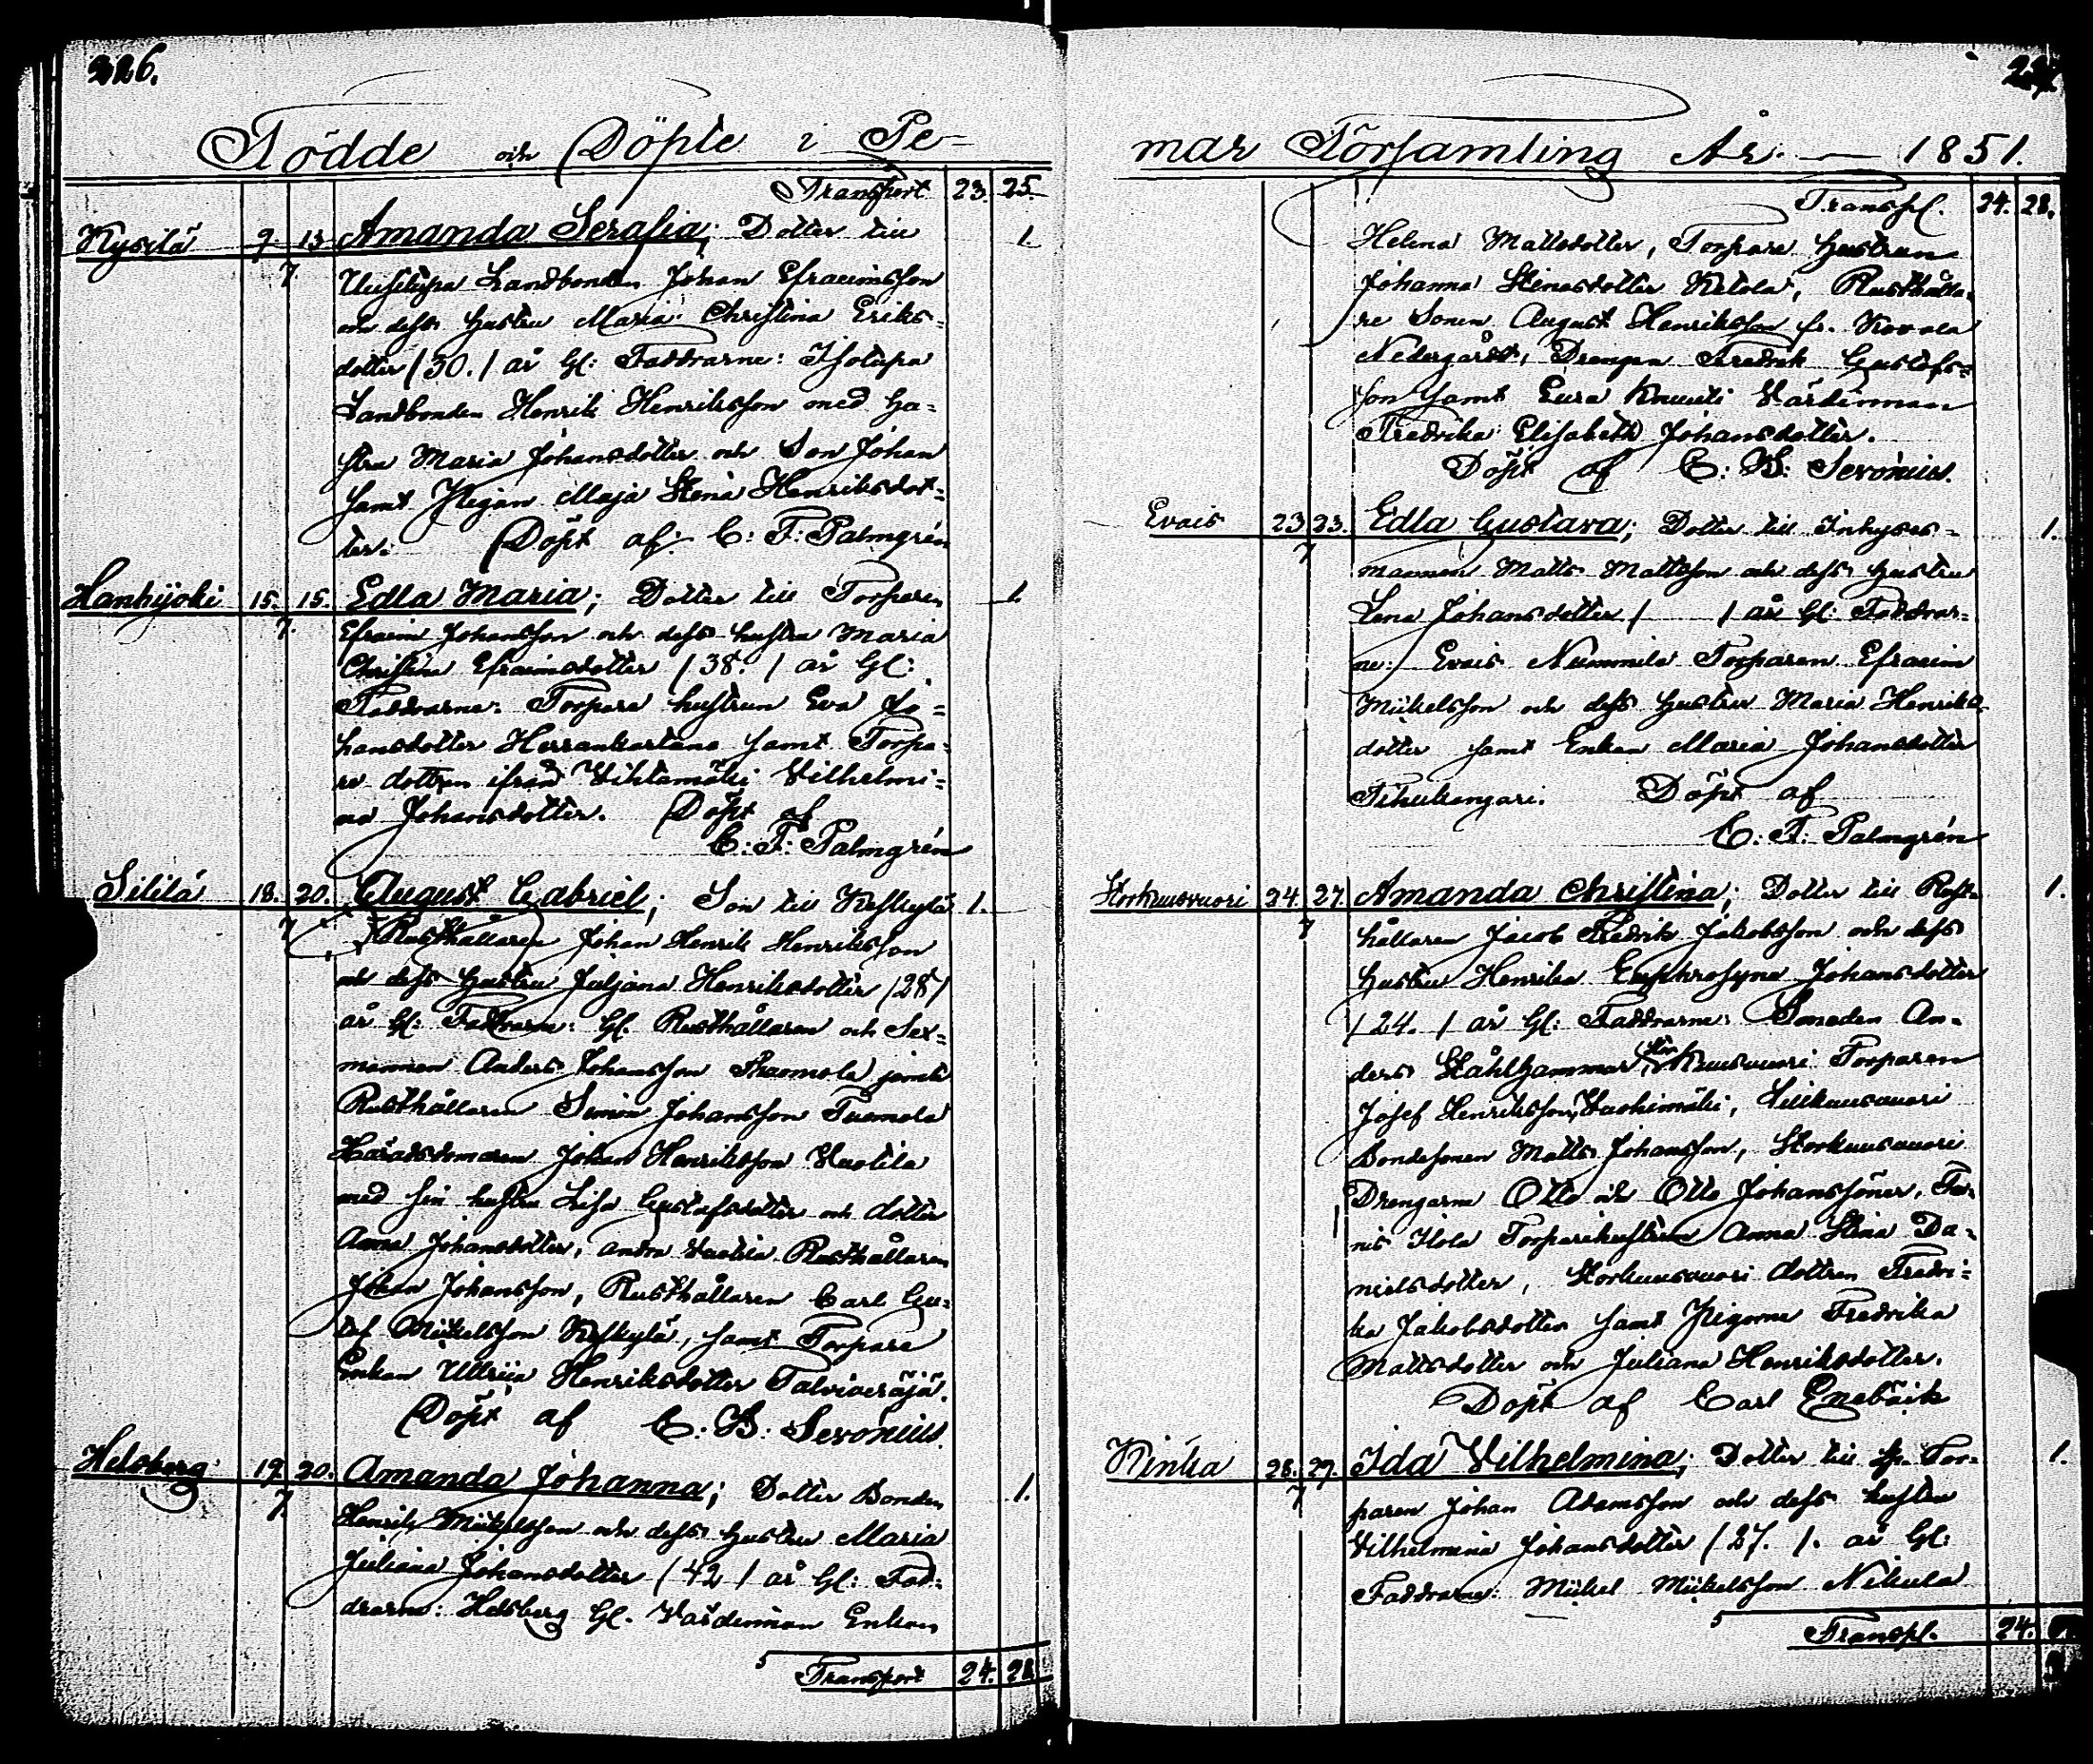 226.
Födde och Döpte i Pe-
Transport 23. 25.
Kysilä 9. 13. Amanda Serafia; Dotter till 1.
7. Uusitupa Landbonden Johan Efraimsson
och dess hustru Maria Christina Eriks-
dotter /30./ år Gl: Faddrarne: Isotupa
Landbonden Henrik Henriksson med hu-
stru Maria Johansdotter och Son Johan
samt Pigan Maja Stina Henriksdot-
ter. Döpt af: C: F: Palmgrén
Hanhijoki 15. 15. Edla Maria; Dotter till Torparen 1.
7. Efraim Johansson och dess hustru Maria
Christina Efraimsdotter /38./ år Gl:
Faddrarne: Torpare hustrun Eva Jo-
hansdotter Herrankartano samt Torpa-
re dottren ifrån Vihtamäki Vilhelmi-
na Johansdotter. Döpt af
C: F: Palmgrén
Sililä 18. 20. August Gabriel; Son till Keskylä 1.
7. Rusthållaren Johan Henrik Henriksson
och dess hustru Juljana Henriksdotter /28/
år Gl: Faddrarne: Gl. Rusthållaren och Sex-
mannen Anders Johansson jemte
Rusthållaren Simon Johansson Tuomola
Häradsdomaren Johan Henriksson Uuotila
med sin hustru Lisa Gustafsdotter och dotter
Anna Johansdotter, andra Rusthållaren
Johan Johansson, Rusthållaren Carl Gu-
staf Mickelsson Keskylä, samt Torpare
Enkan Ullrica Henriksdotter Talviaräjä.
Döpt af C. B: Seronius.
Helsberg 19. 20. Amanda Johanna; Dotter Bonden 1.
7. Henrik Mickelsson och dess hustru Maria
Juliana Johansdotter /42/ år Gl: Fad-
drarne: Helsberg Gl. Värdinnan Enkan
5 Transport 24. 28.
227.
mar Församling År. — 1851.
Transpt. 24. 28.
Helena Mattsdotter, Torpare hustrun
Johanna Stinasdotter Ketola, Rusthålla-
re Sonen August Henriksson fr. Kovala
Nedergårdt, Drengen Fredrik Gustafs-
son samt Eura Knuuti Värdinnan
Fredrika Elisabeth Johansdotter.
Döpt af C: B: Seronius.
Evais 23. 23. Edla Gustava; Dotter till Inhyses- 1.
7 mannen Matts Mattsson och dess hustru
Lena Johansdotter / / år Gl: Faddrar-
ne: Evais Nummila Torparen Efraim
Mickelsson och dess hustru Maria Henriks-
dotter samt Enkan Maria Johansdotter
Tihukangari. Döpt af
C. F: Palmgrén
Storkuusvuori 24. 27. Amanda Christina; Dotter till Rust- 1.
7 hållaren Jacob Fredrik Jakobsson och dess
hustru Henrika Euphrosyna Johansdotter
/24./ år Gl: Faddrarne: Smeden An-
ders Stålhammar, Stor Kuusvuori Torparen
Josef Henriksson, Lillkuusvuori
Bondesonen Matts Johansson, Storkuusvuori
Drengarne Otto och Otto Johanssöner, Ta-
nis Ilola Torparehustrun Anna Stina Da-
nielsdotter, Storkuusvuori dottren Fredri-
ka Jakobsdotter samt Pigorne Fredrika
Mattsdotter och Juliana Henriksdotter.
Döpt af Carl Enebäck
Rinka 26. 27. Ida Vilhelmina; Dotter till fr. Tor- 1.
7 paren Johan Adamsson och dess hustru
Vilhelmina Johansdotter /27./. år Gl:
Faddrarne: Mickel Mickelsson Nikula
5 Transpt. 24.